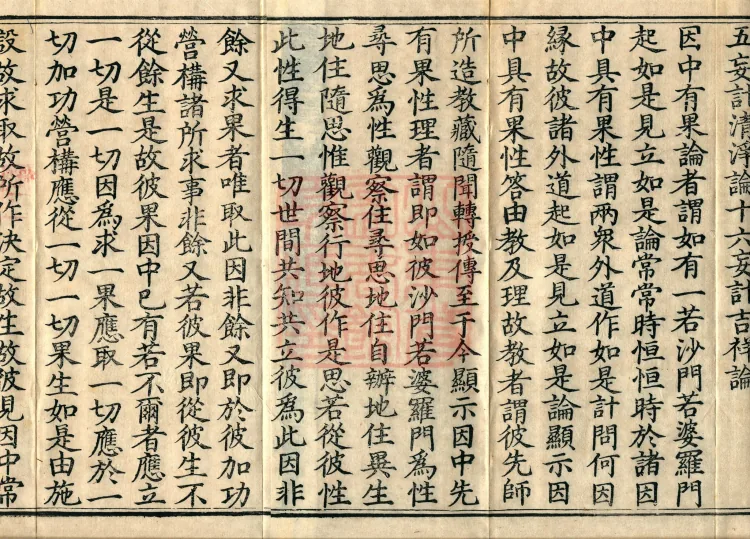 五妄計清淨論十六妄計吉祥論
因中有果論者謂如有一若沙門若婆羅門
起如是見立如是論常常時恒恒時於諸因
中具有果性謂兩衆外道作如是計問何因
緣故彼諸外道起如是見立如是論顯示因
中具有果性答由教及理故教者謂彼先師
所造教藏隨聞轉授傳至于今顯示因中先
有果性理者謂即如彼沙門若婆羅門爲性
尋思爲性觀察住尋思地住自辦地住異生
地住隨思惟觀察行地彼作是思若從彼性
此性得生一切世間共知共立彼爲此因非
餘又求果者唯取此因非餘又即於彼加功
營構諸所求事非餘又若彼果即從彼生不
從餘生是故彼果因中已有若不爾者應立
一切是一切因爲求一果應取一切應於一
切加功營構應從一切一切果生如是由施
設故求取故所作決定故生故彼見因中常